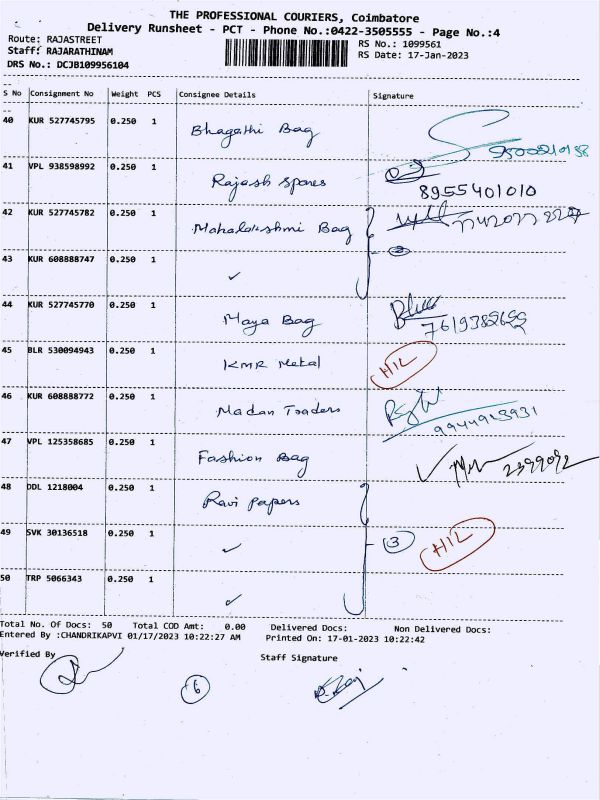 THE PROFESSIONAL COURIERS, Coimbatore
Delivery Runsheet - PCT - Phone No.:0422-3505555 - Page No.:4
Route: RAJASTREET
RS No.: 1099561
Staff: RAJARATHINAM
RS Date: 17-Jan-2023
DRS No.: DCJB109956104
S No Consignment No Weight PCS Consignee Details Signature
40 KUR 527745795 0.250 1 Bhagathi Bag
41 VPL 938598992 0.250 1 Rajash Spares 8955401010
42 KUR 527745782 0.250 1 Mahalakshmi Bag
43 KUR 608888747 0.250 1 ✓ 2
44 KUR 527745770 0.250 1 Maya Bag
45 BLR 530094943 0.250 1 KMR Metal HIL
46 KUR 608888772 0.250 1 Madan Traders 9944913931
47 VPL 125358685 0.250 1 Fashion Bag 2399092
48 DDL 1218004 0.250 1 Ravi Papers
49 SVK 30136518 0.250 1 ✓ 3 HIL
50 TRP 5066343 0.250 1 ✓
Total No. Of Docs: 50 Total COD Amt: 0.00 Delivered Docs: Non Delivered Docs:
Entered By :CHANDRIKAPVI 01/17/2023 10:22:27 AM Printed On: 17-01-2023 10:22:42
Verified By Staff Signature
6